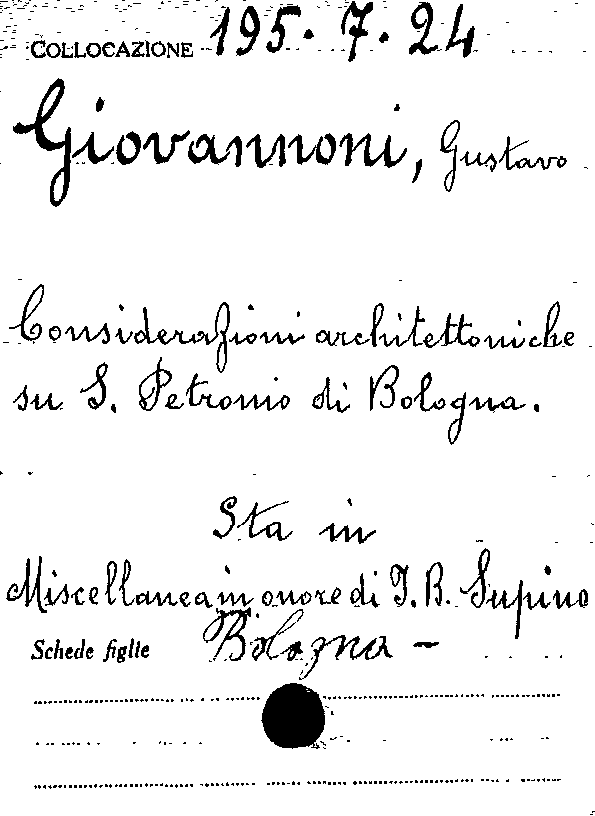 COLLOCAZIONE 195. 7. 24
Giovannoni, Gustavo
Considerazioni architettoniche
su S. Petronio di Bologna.
Sta in
Miscellanea in onore di I. B. Supino
Schede figlie Bologna -